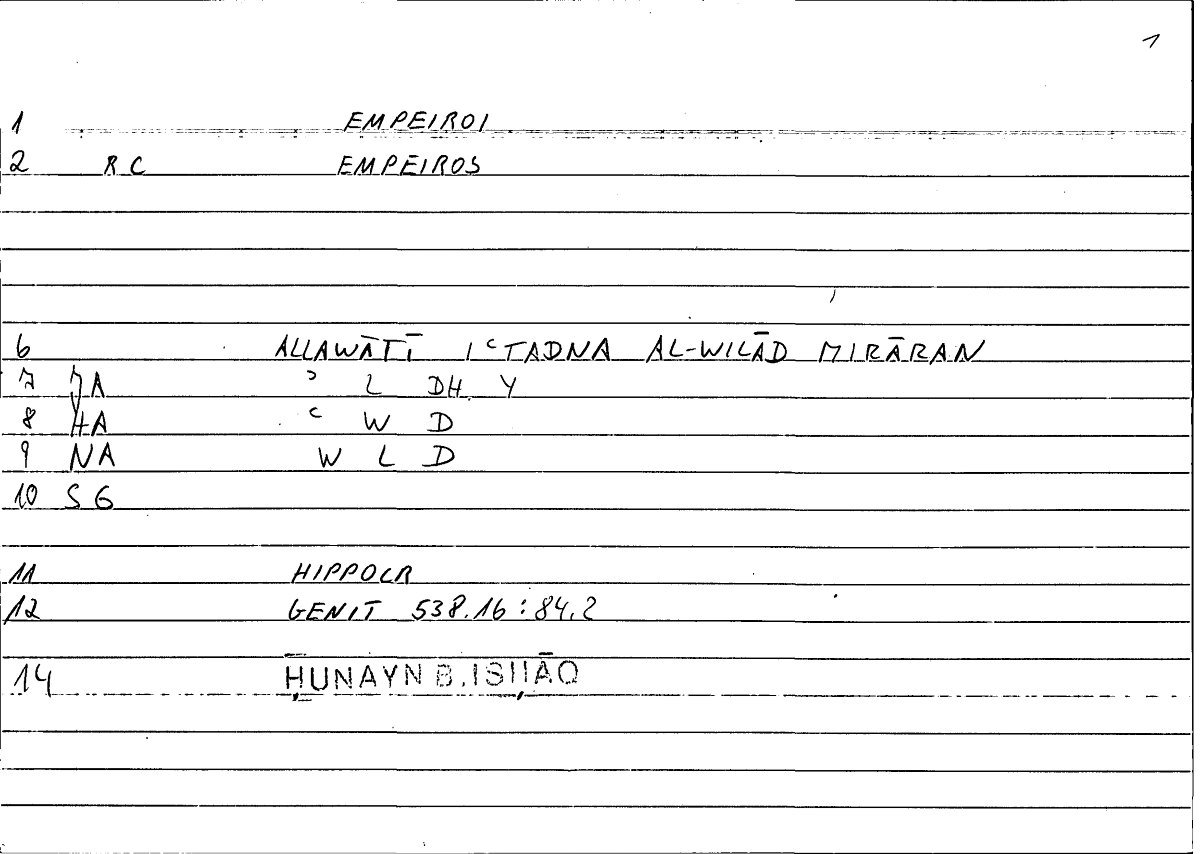 1
1 EMPEIROI
2 RC EMPEIROS
6 ALLAWĀTĪ IʿTADNA AL-WILĀD MIRĀRAN
7 JA ʾ L DH Y
8 HA ʿ W D
9 NA W L D
10 SG
11 HIPPOCR
12 GENIT 538.16:84.2
14 ḤUNAYN B. ISḤĀQ